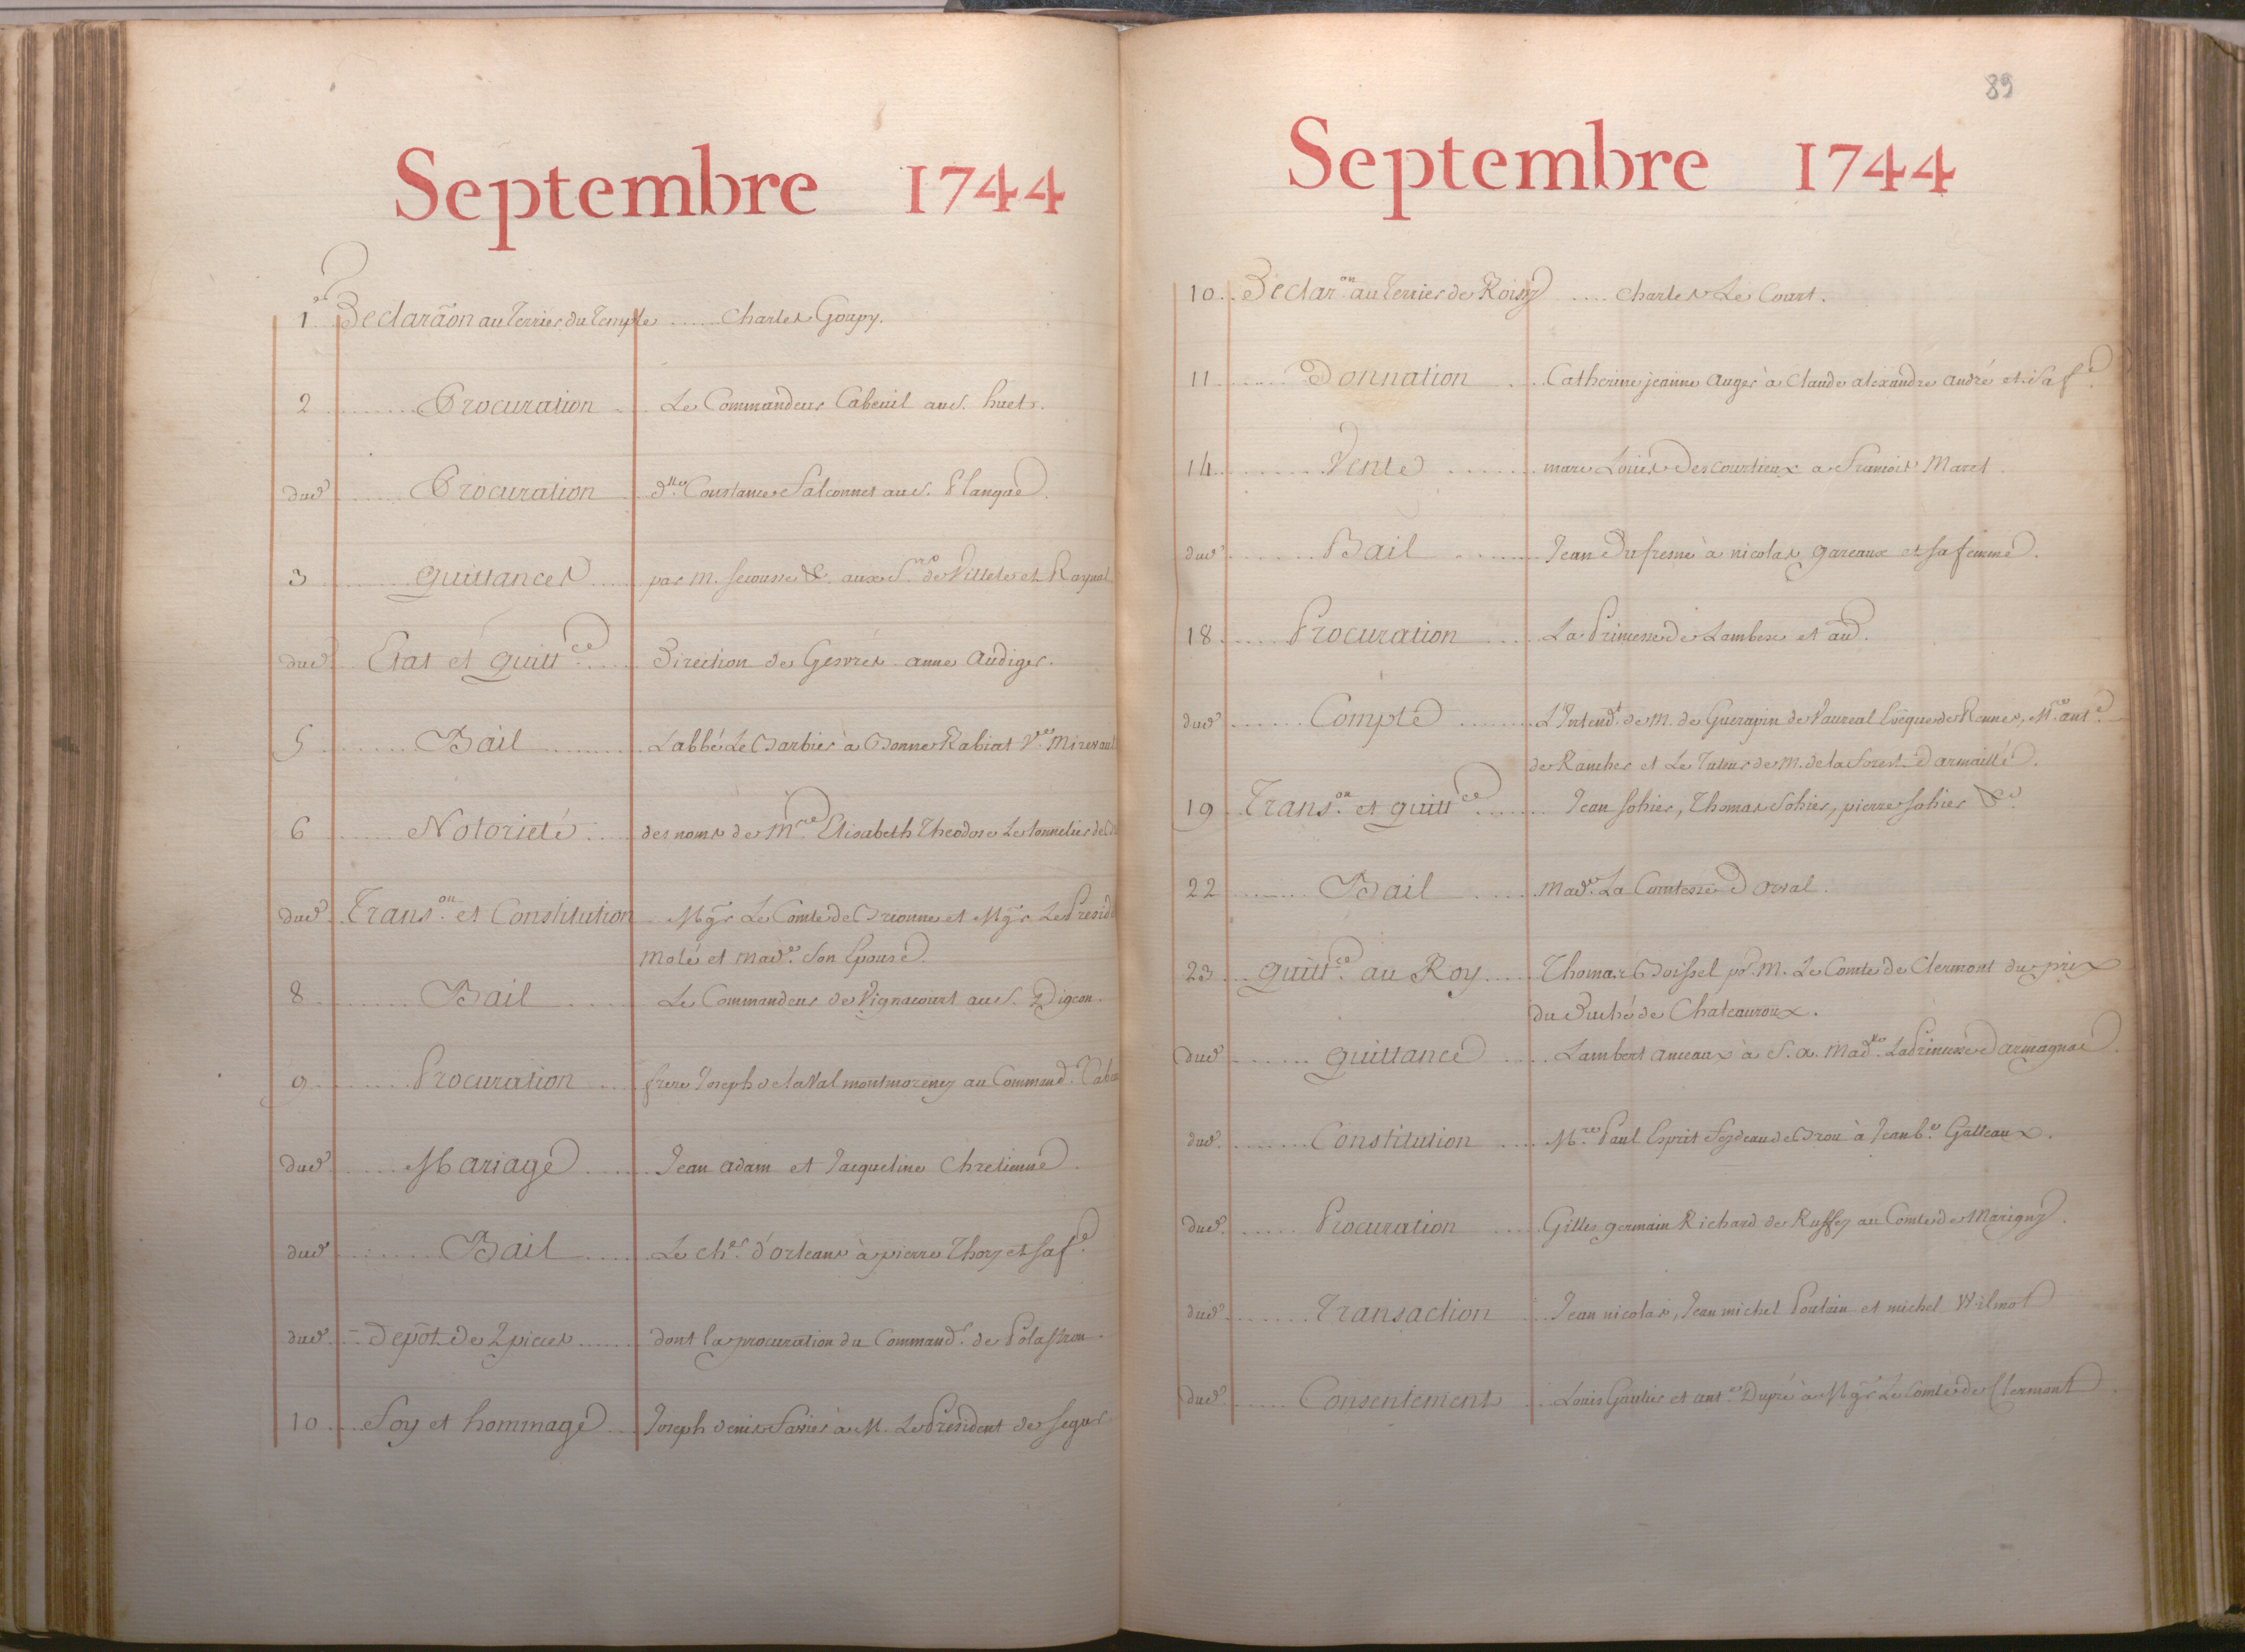 Septembre 1744
1er Declarãon au Terrier du Temple ...... Charles Goupy.
2 ........ Procuration .... Le Commandeur Cabeuil au S. huet.
dud ...... Procuration dlle Constance Falconnet au S. Planque.
3 ...... quittances ..... par M. secousse &c. aux Srs de Villele et Raynal.
dud Etat et quittce ...... Direction de Gesvres anne Audiger.
5 ........ Bail .......... L'abbé Le Barbier à Bonne Rabiat Ve
6 ...... Notorieté ..... des noms de Mre Elisabeth Theodose Le tonnelier de
dud. Transon et Constitution Mgr Le Comte de Brionne et Mgr Le Presid
Molé et Made. son Epouse.
8 ......... Bail ...... Le Commandeur de Vignacourt au S. Digeon.
9 ........ Procuration .... frere Joseph de laval montmorency au Command.
dud ...... Mariage ...... Jean adam et Jacqueline Chretienne.
dud ........ Bail ....... Le cher. d'orleans à pierre Thory et sa fe.
dud ... Depôt de 2 pieces ....... dont la procuration du Commandr. de Polastron.
10 .... Foy et hommage ... Joseph denis Farier à M. Le President de segur
89
Septembre 1744
10 .. Declaron. au Terrier de Roissy ..... Charles Le Court.
11 ......... Donnation .... Catherine jeanne Auger à Claude alexandre andré et sa fe.
14 ......... Vente ........ marc Louis Descourtieux a Francois Maret.
dud ........ Bail ......... Jean Dufresne à nicolas gareaux et sa femme.
18 ...... Procuration .... La Princesse de Lambesc et au d.
dud ....... Compte ......... L'Intendt. de M. de Guerapin de Vaureal Evêque de Rennes, M. ante.
de Rancher et Le Tuteur de M. de la forest d'armaillé.
19 Transon. et quittce ....... Jean sohier, Thomas Sohier, pierre sohier &c.
22 ........ Bail ..... Made. La Comtesse d'orval.
23 ... quittce. au Roy ..... Thomas Boissel pr. M. Le Comte de Clermont du prix
du Duché de Chateauroux.
dud ....... quittance ..... Lambert anceaux à S. a. Madlle. La Princesse d'armagnac.
dud ........ Constitution .... Mre. Paul Esprit Feydeau de Brou à Jean be. Gatteaux.
dud. ...... Procuration .... Gilles germain Richard de Ruffey au Comte de Marigny.
dud ........ Transaction ... Jean nicolas, Jean michel Poulain et michel Wilmot
dud. ...... Consentement ... Louis Gaultier et ante. Dupré à Mgr. Le Comte de Clermont